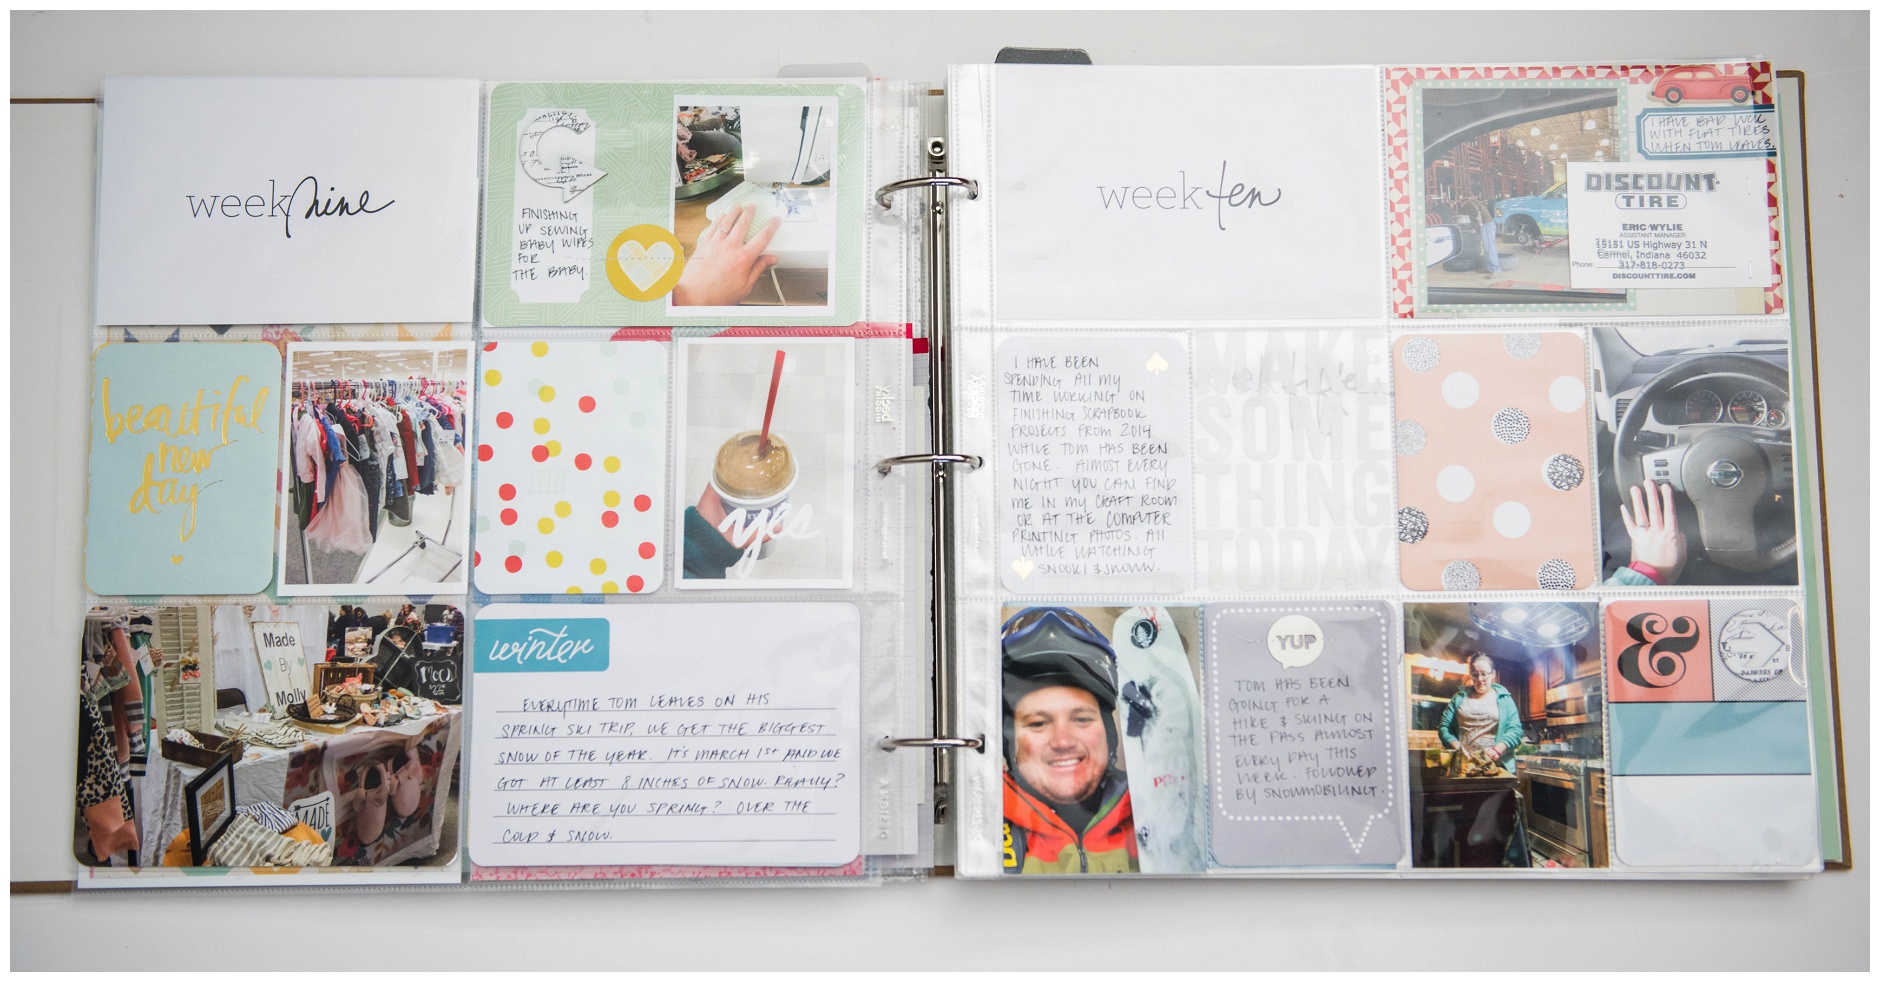 week nine
FINISHING
UP SEWING
BABY WIPES
FOR
THE BABY.
beautiful
new
day
yes
Made
By
Molly
MADE
winter
EVERYTIME TOM LEAVES ON HIS
SPRING SKI TRIP, WE GET THE BIGGEST
SNOW OF THE YEAR. IT'S MARCH 1st AND WE
GOT AT LEAST 8 INCHES OF SNOW. REALLY?
WHERE ARE YOU SPRING? OVER THE
COLD & SNOW.
week ten
I HAVE BAD LUCK
WITH FLAT TIRES
WHEN TOM LEAVES.
DISCOUNT
TIRE
ERIC WYLIE
ASSISTANT MANAGER
15151 US Highway 31 N
Carmel, Indiana 46032
Phone: 317-818-0273
DISCOUNTTIRE.COM
I HAVE BEEN
SPENDING ALL MY
TIME WORKING ON
FINISHING SCRAPBOOK
PROJECTS FROM 2014
WHILE TOM HAS BEEN
GONE. ALMOST EVERY
NIGHT YOU CAN FIND
ME IN MY CRAFT ROOM
OR AT THE COMPUTER
PRINTING PHOTOS. All
WHILE WATCHING
SNOOKI & JWOWW.
MAKE
SOME
THING
TODAY
YUP
TOM HAS BEEN
GOING FOR A
HIKE & SKIING ON
THE PASS ALMOST
EVERY DAY THIS
WEEK. FOLLOWED
BY SNOWMOBILING.
&